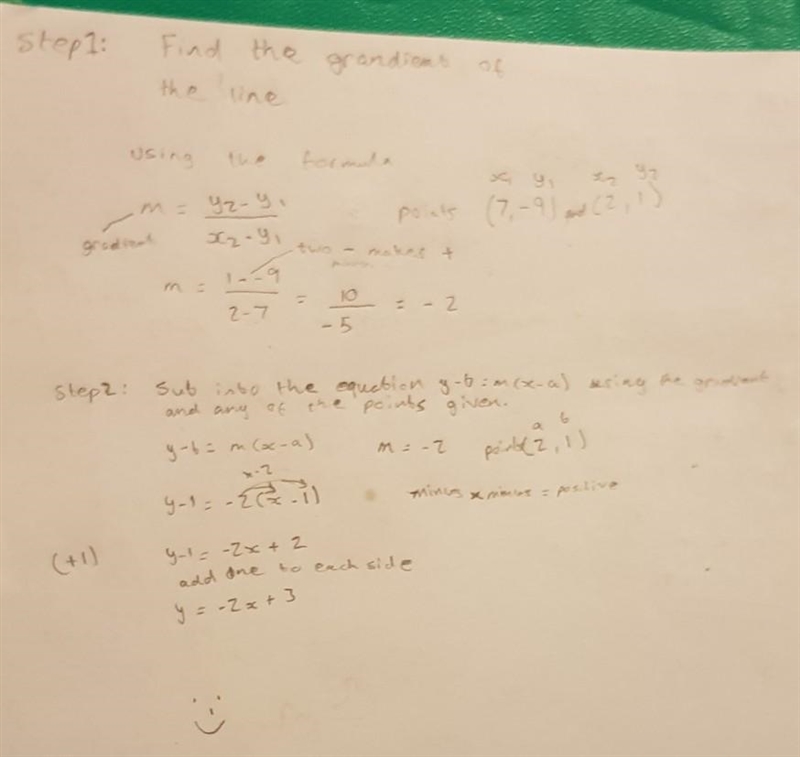 Step1: Find the grandient of
the line
using the formula
x1 y1 x2 y2
m = y2 - y1 / x2 - y1 points (7, -9) and (2, 1)
gradient
two - makes +
m = 1 - -9 / 2 - 7 = 10 / -5 = - 2
Step2: Sub into the equation y-b = m(x-a) using the gradient
and any of the points given.
a b
y-b = m(x-a) m = -2 point (2, 1)
x-2
y-1 = -2(x -1) minus x minus = positive
(+1) y-1 = -2x + 2
add one to each side
y = -2x + 3